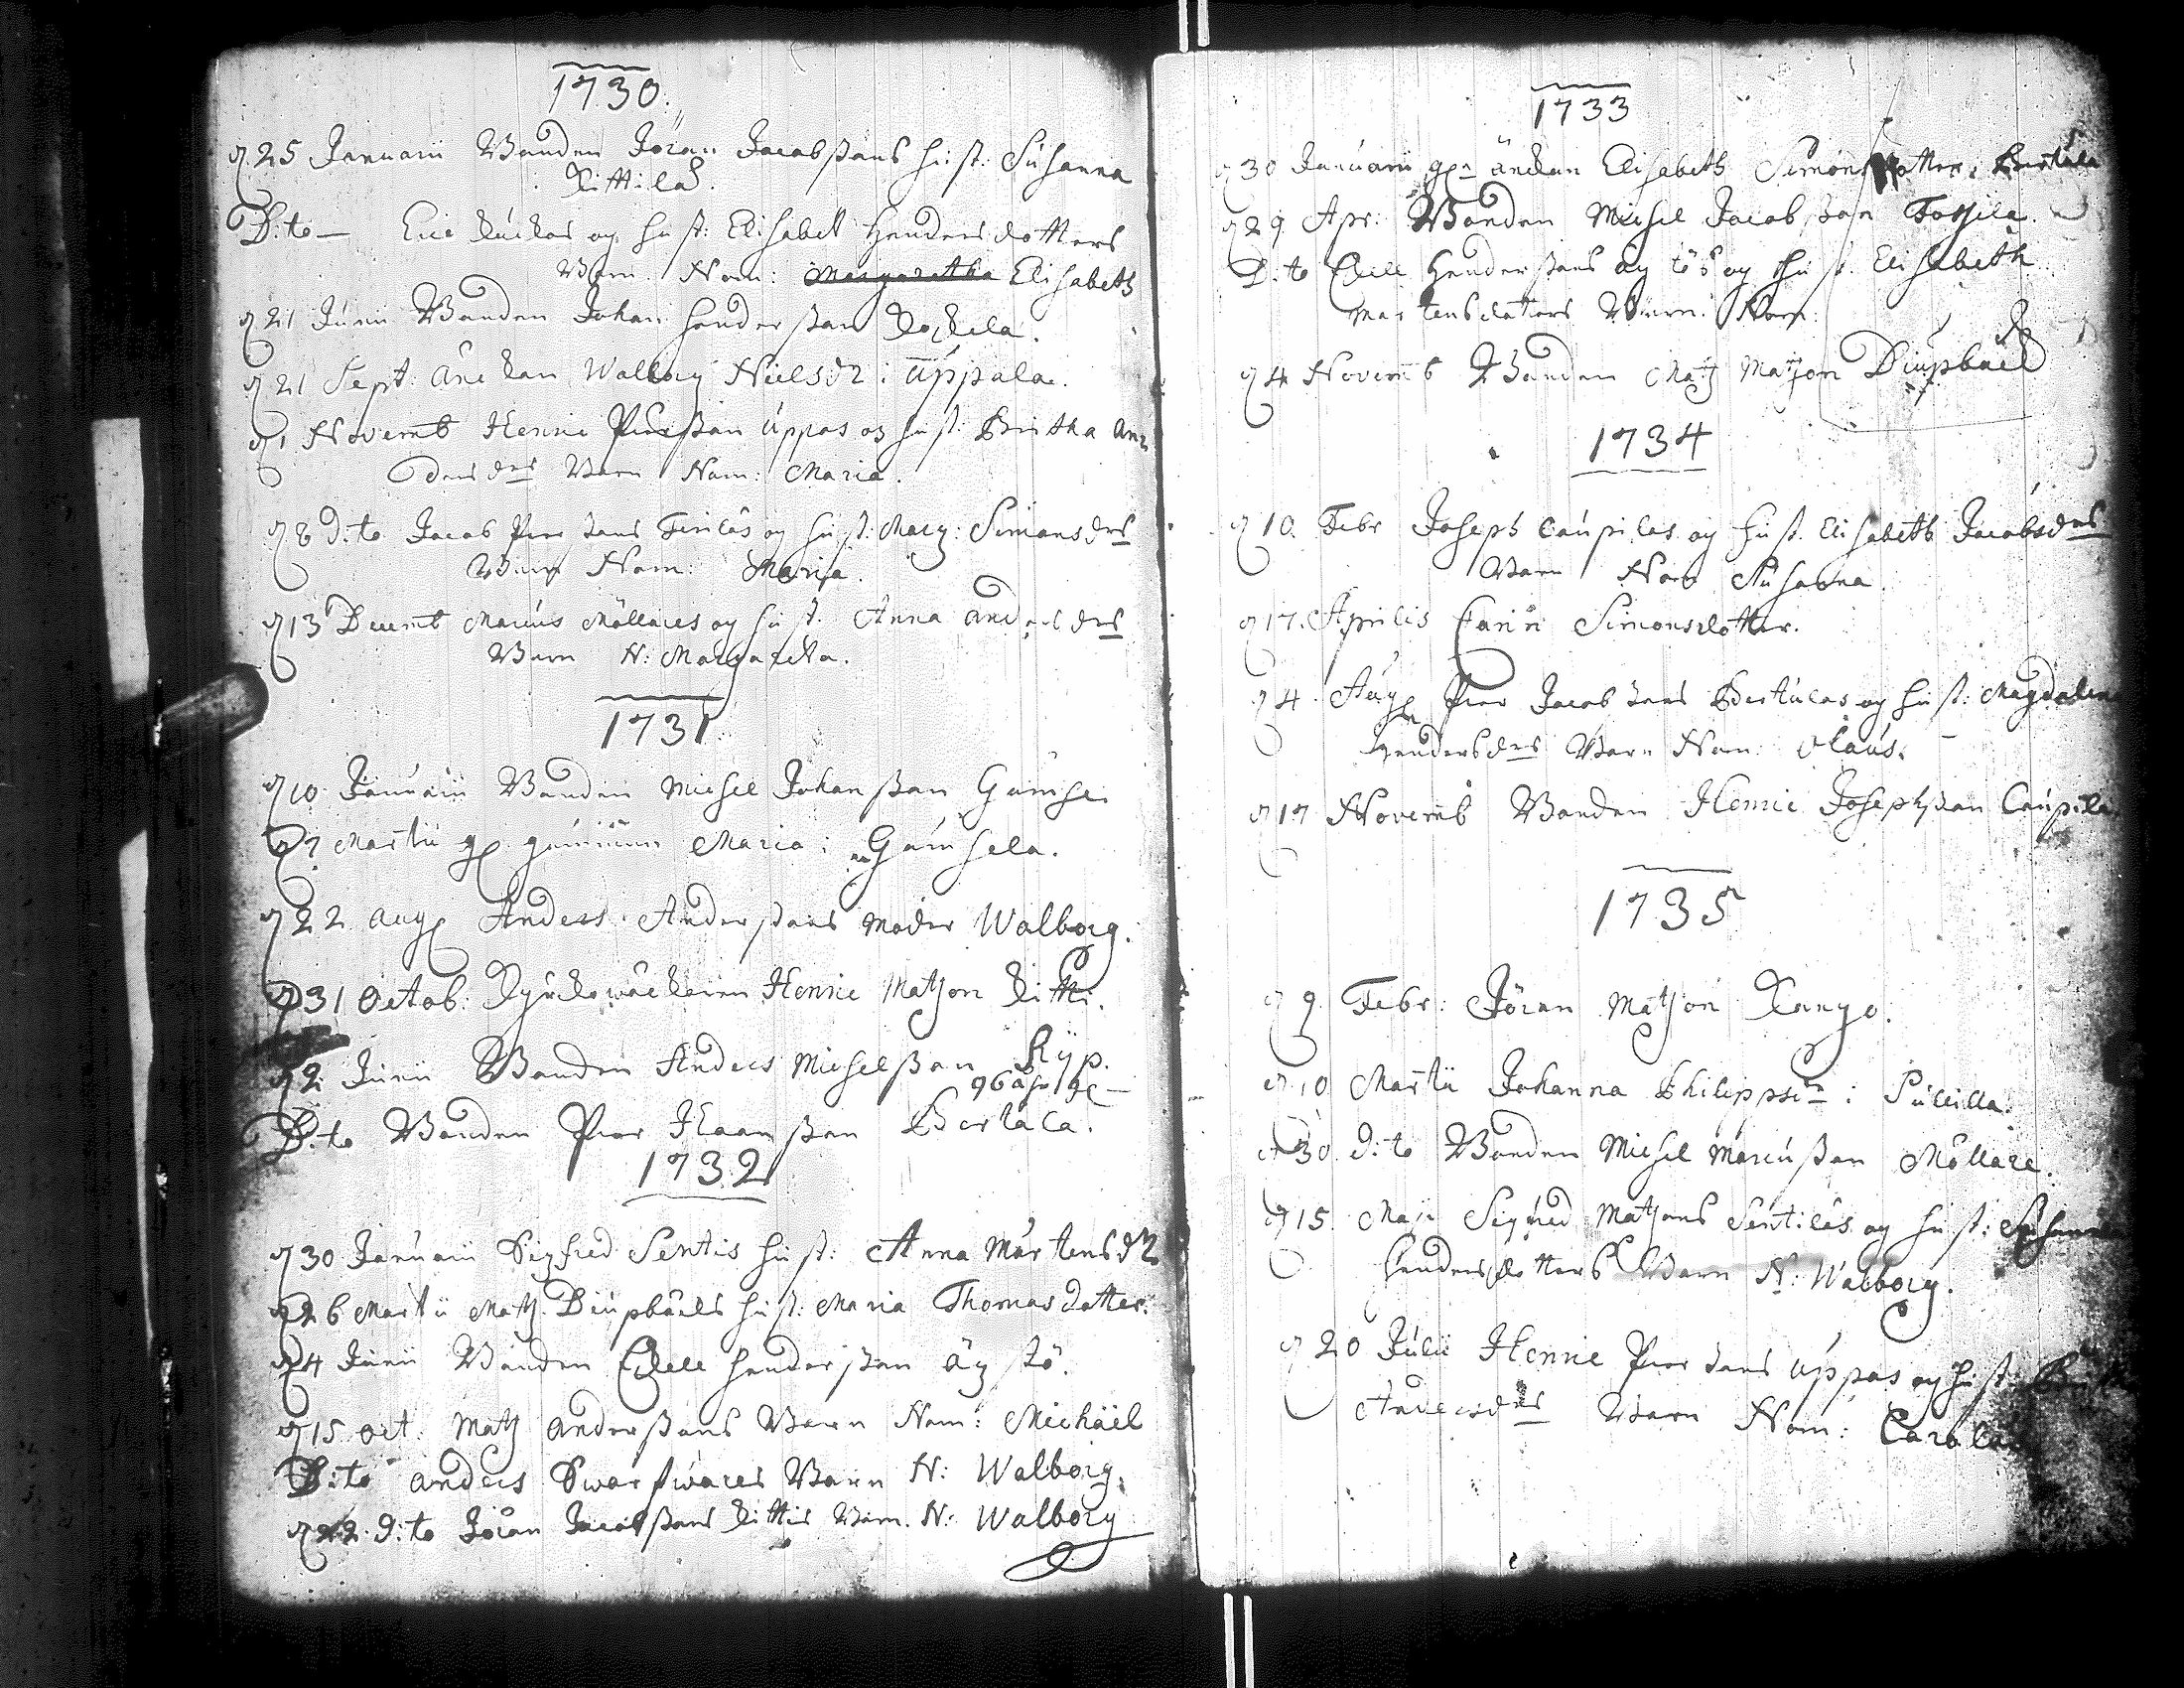 1730.
d. 25 Januarii Bonden Jöran Jacobßans hust: Susanna
Kittilas.
D:to — Eric och hust: Elisabet Hendersdotters
Barn. Nom: Margaretha Elisabeth
d 21 Junii Bonden Johan Henderßan
d 21 Sept: änckan Walborg Nielsdr i Uppala.
d 1 Novemb Henric Pärßan Uppas og hust: Birtha An=
dersdrs Barn Nom: Maria.
d 8 D:to Jacob Pär sans og hust: Marg: Simonsdrs
Barn Nom: Maria.
d 13 Decemb Marcus Möllares og hust. Anna Andersdrs
Barn N: Margareta.
1731
d 10 Januarii Bonden Michel Johanßan
d 7 Martii Maria i
d 22 Aug Anders Anderßans Moder Walborg.
d 31 Octob: Henric Matson Kitti.
d 2 Junii Bonden Anders Michelßan
96
D:to Bonden Pär Klaanßan Bertala.
1732
d 30 Januarii Sigfred Sentis hust: Anna Mårtensdr
d 26 Martii Mats Diupbäcks hust: Maria Thomasdotter.
d 4 Junii Bonden Henderßan
d 15 Oct. Mats Anderßans Barn Nom: Michäel
D:to Anders Barn N: Walborg.
d 22 D:to Jöran Jacobßans Kittis Barn. N: Walborg
1733
d 30 Januarii änckan Elisabeth Simonsdotter
d 29 Apr: Bonden Michel Jacobßan
D:to Henderßans og hust. Elisabeth
Mårtensdoters Barn: Nom:
d 4 Novemb Bonden Mats Matson Diupbäck
1734
d 10. Febr Joseph Caupilas og hust. Elisabeth Jacobsdrs
Barn Nom Susanna.
d 17. Aprilis Carin Simonsdotter.
d 4. Aug Pär Jacob sans Bertulas og hust: Magdalena
Hendersdrs Barn Nom: Olaus.
d 17 Novemb Bonden Henric Josephßan Caupila
1735
d 9 Febr: Jöran Matson Kango.
d 10 Martii Johanna Philippsdr i
d 30. D:to Bonden Michel Marcusßan Möllare.
d 15. Maji Sigfred Matsons Sentilas og hust: Susanna
Hendersdotters Barn N: Walborg.
d 20 Julii Henric Pär sans Uppas og hust:
Andersdrs Barn Nom: